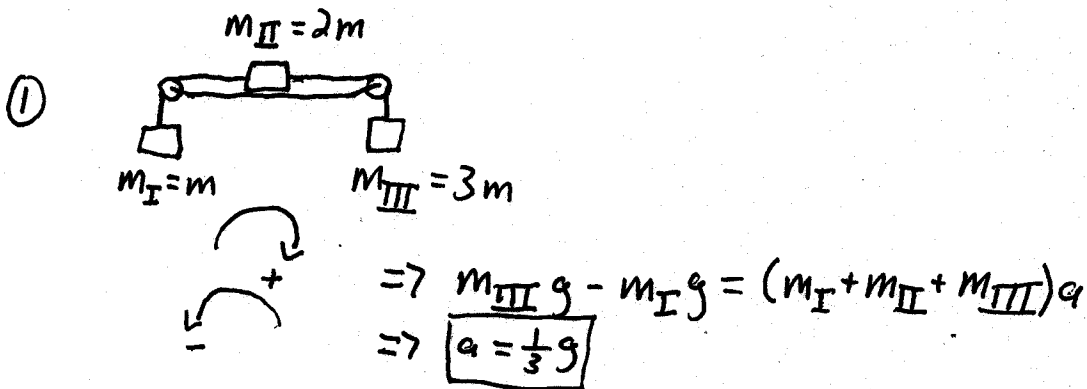 m_II = 2m
①
m_I = m
m_III = 3m
+
-
=> m_III g - m_I g = (m_I + m_II + m_III)a
=> a = 1/3 g